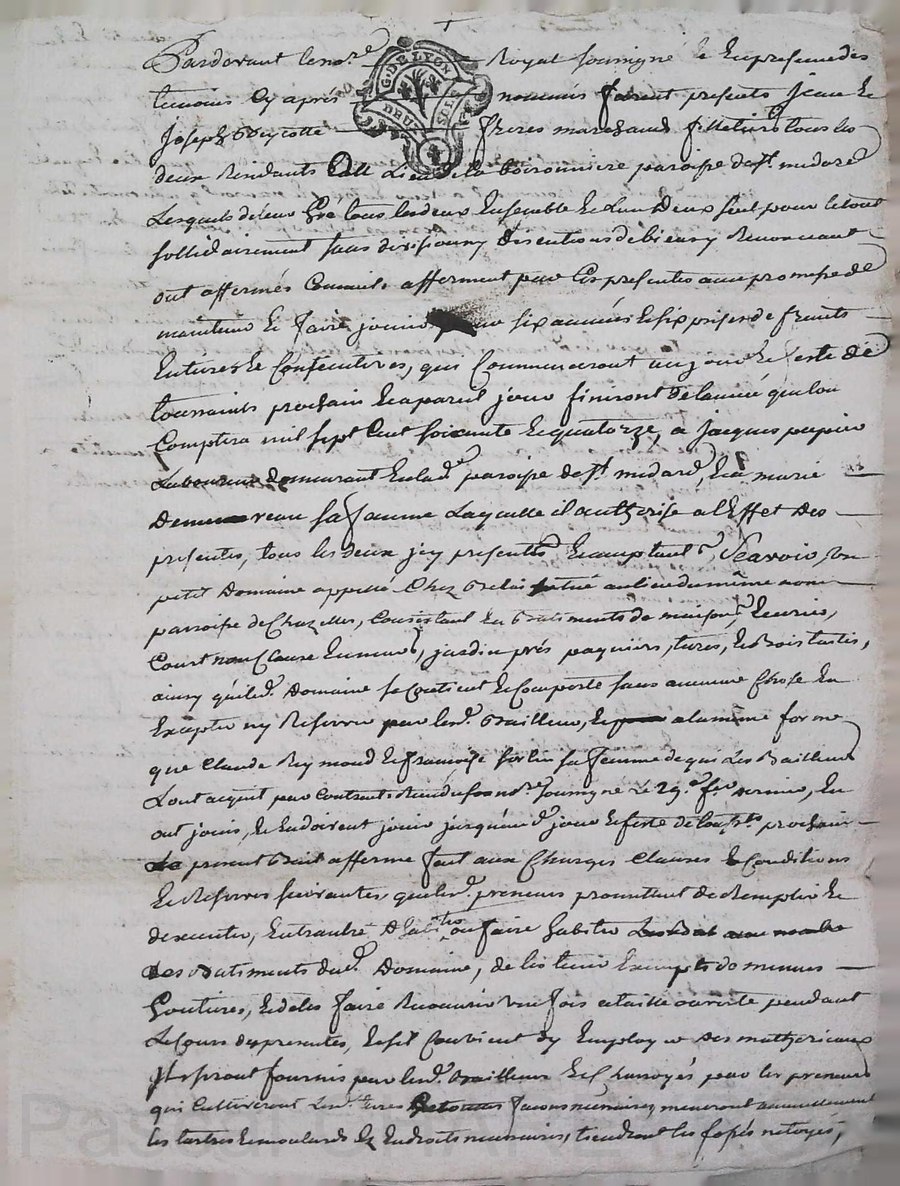 Pardevant le no.re Royal soussigné Et en presence des
temoins Cy après nommés furent presents Jean Et
G. DE LYON
DEUX SOLS
Joseph freres marchands tous les
deux Residants Lieu de la paroisse de St. medard
Lesquels de leur Gré tous les deux Ensemble Et L'un Deux seul pour le tout
sollidairement sans division ny discutions de biens y Renonceant
ont affermés Comme ils afferment par Ces presentes avec promesse de
maintenir Et faire jouir pour six années Et six prises de fruits
Entieres Et Consecutives, qui Commenceront au jour Et feste de
toussaints prochain Et a pareil jour finiront de l'année que l'on
Comptera mil sept Cent soixante Et quatorze, a Jacques papier
Laboureur demeurant En lad. paroisse de St. medard, Et a marie
sa femme Laquelle il authorise a l'Effet Des
presentes, tous les deux icy presents Et acceptants Scavoir, un
petit Domaine appellé Chez situé au lieu du même nom
parroisse de Chazelles, Consistant En Batiments de maison, Ecuries,
Court Close En murs, jardin prés paquiers, terres, Et Bois tartes,
ainsy que led. Domaine se Contient Et Comporte sans aucune Chose En
Excepter ny Reserver par lesd. Bailleurs, Et a la même forme
que Claude Reymond Et françoise sa femme de qui Les Bailleurs
L'ont acquit par Contrat Receu du no.re soussigné Le 29.e dernier, En
ont jouis, Et En doivent jouir jusqu'aud. jour Et feste de touss.ts prochain
present Bail afferme fait aux Charges Clauses Et Conditions
Et Reserves suivantes, que lesd. preneurs promettent de Remplir Et
d'executer, Entr'autre d'habiter ou faire habiter
Les Batiments dud. Domaine, de les tenir Exempts de menues
Goutieres, Et de les faire Recouvrir une fois a taille ouverte pendant
Le Cours des presentes, Et s'il Convient d'y Employer Des mattheriaux
Ils seront fournis par lesd. Bailleurs Et Charroyés par les preneurs
qui Cultiveront Lesd. terres faisons necessaires, meneront annuellement
les tartres Et moulards Ez Endroits necessaires, tiendront les fossés netoyés,